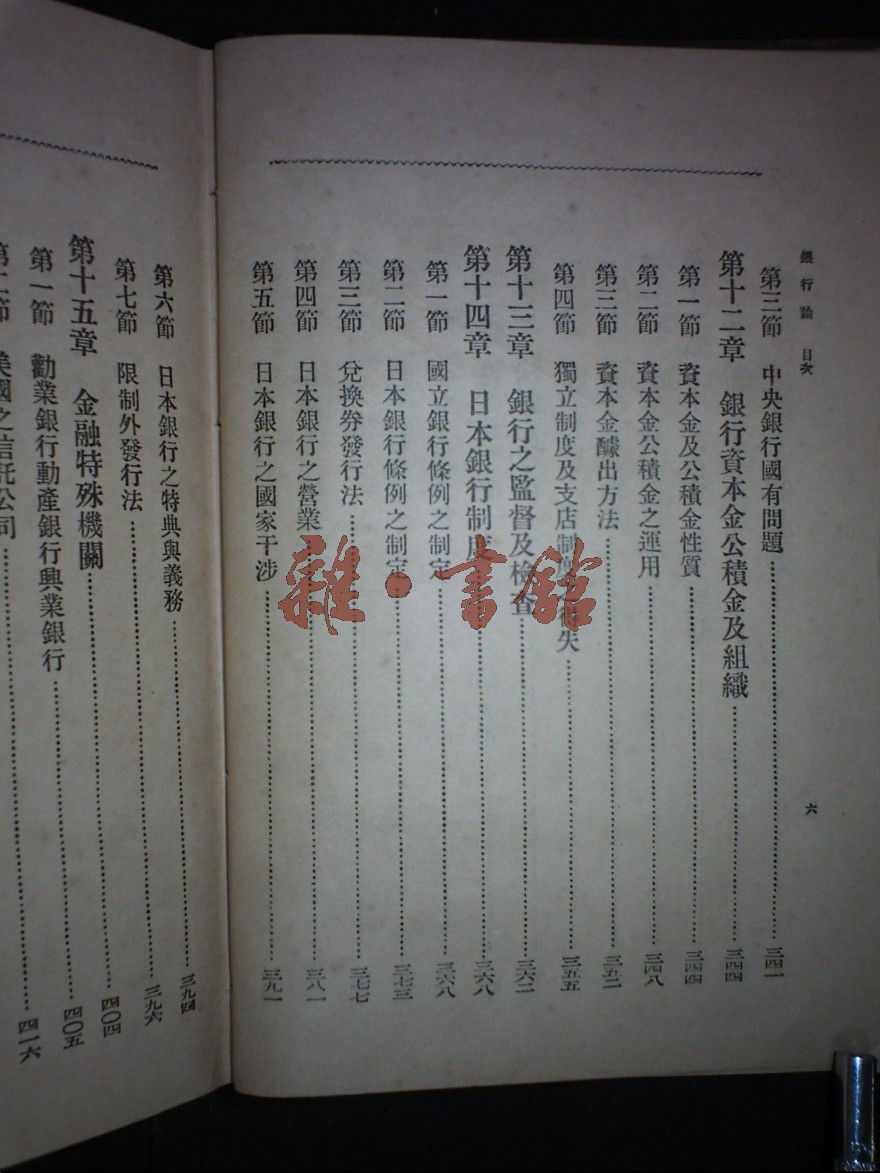 銀行論 目次
六
第三節 中央銀行國有問題 三四一
第十二章 銀行資本金公積金及組織 三四四
第一節 資本金及公積金性質 三四四
第二節 資本金公積金之運用 三四八
第三節 資本金醵出方法 三五二
第四節 獨立制度及支店制度之得失 三五五
第十三章 銀行之監督及檢查 三六二
第十四章 日本銀行制度 三六八
第一節 國立銀行條例之制定 三六八
第二節 日本銀行條例之制定 三七三
第三節 兌換券發行法 三七七
第四節 日本銀行之營業 三八一
第五節 日本銀行之國家干涉 三九一
第六節 日本銀行之特典與義務 三九四
第七節 限制外發行法 三九六
第十五章 金融特殊機關 四〇四
第一節 勸業銀行動產銀行興業銀行 四〇五
第二節 美國之信託公司 四一六
雜·書館